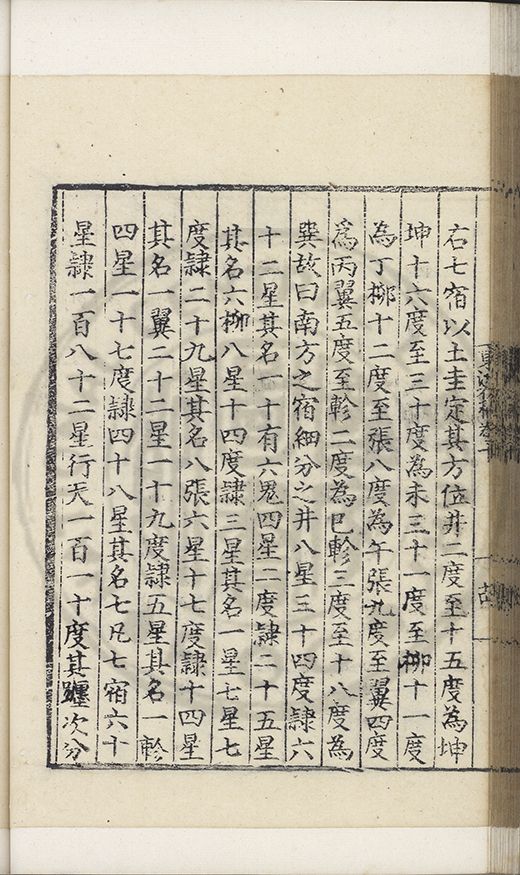 右七宿以土圭定其方位井二度至十五度為坤
坤十六度至三十度為未三十一度至柳十一度
為丁柳十二度至張八度為午張九度至翼四度
爲丙翼五度至軫二度為巳軫三度至十八度為
巽故曰南方之宿細分之井八星三十四度隷六
十二星其名一十有六鬼四星二度隷二十五星
其名六柳八星十四度隷三星其名一星七星七
度隷二十九星其名八張六星十七度隷十四星
其名一翼二十二星一十九度隷五星其名一軫
四星一十七度隷四十八星其名七凡七宿六十
星隷一百八十二星行天一百一十度其躔次分